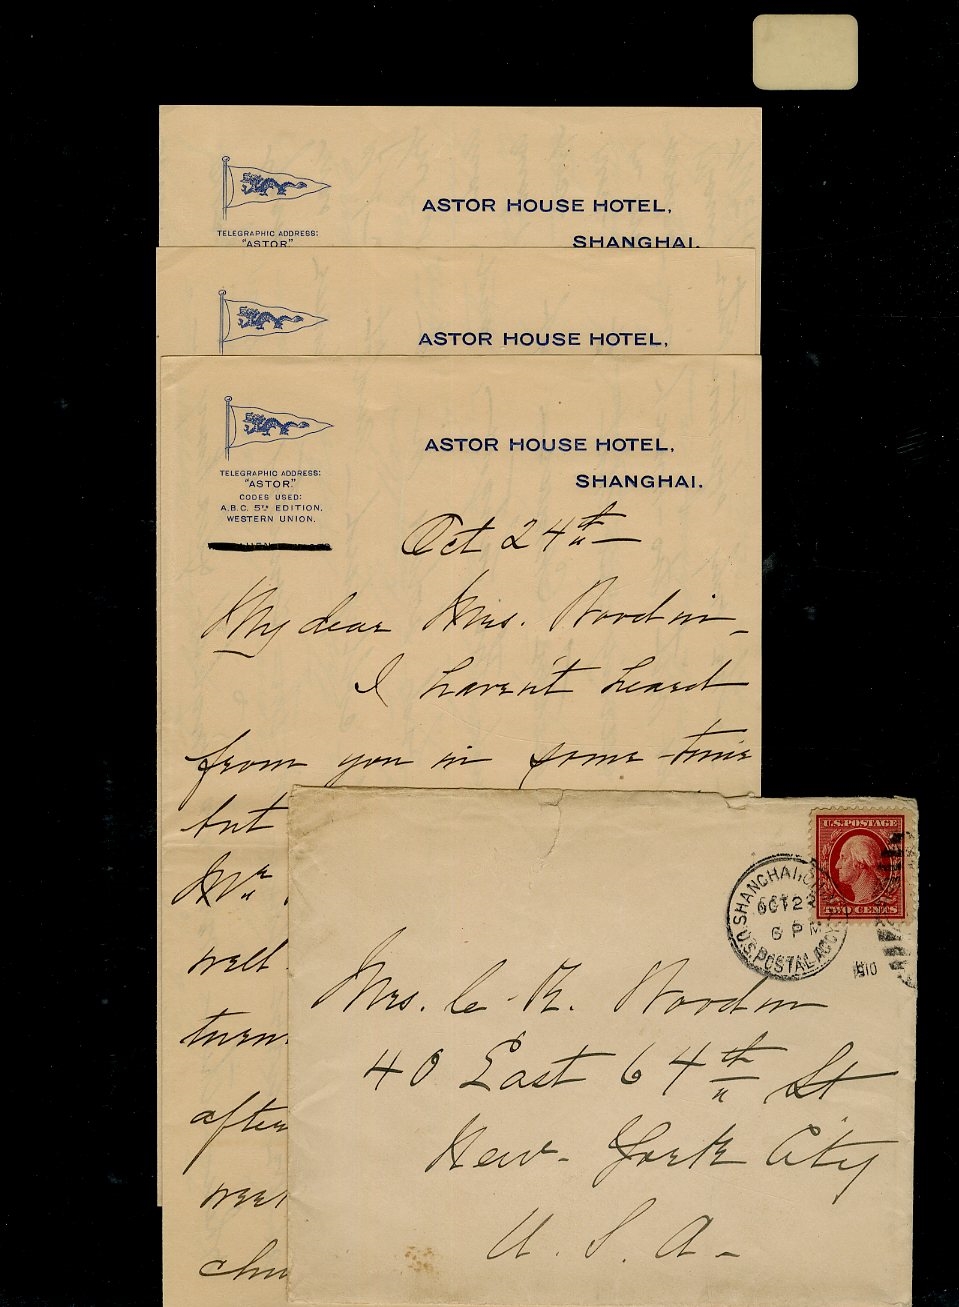 ASTOR HOUSE HOTEL,
SHANGHAI.
TELEGRAPHIC ADDRESS:
"ASTOR."
ASTOR HOUSE HOTEL,
ASTOR HOUSE HOTEL,
SHANGHAI.
TELEGRAPHIC ADDRESS:
"ASTOR."
CODES USED:
A.B.C. 5TH EDITION.
WESTERN UNION.
Oct 24th
My dear Mrs. Woodin -
I haven't heard
from you in some time
but
Mr
well
turn
after
week
chu
U.S. POSTAGE
TWO CENTS
SHANGHAI
OCT 2
6 PM
U.S. POSTAL AGCY
1910
Mrs. C. R. Woodin
40 East 64th St
New York City
U. S. A.